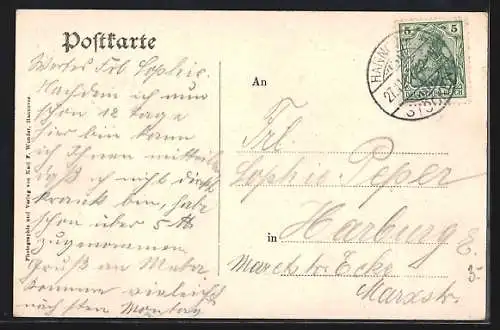 Postkarte
Wertes Frl. Sophie.
Nachdem ich nun
schon 12 Tage
hier bin kann
ich Ihnen mitteilen
daß ich nicht
krank bin, habe
schon über 5 ℔
zugenommen.
Gruß an Mutter
komme vielleicht
nächsten Montag
Photographie und Verlag von Karl F. Wunder, Hannover
An
Frl.
Sophie Peper
in Harburg E.
Marktstr. Ecke
Marxstr.
5-
5 5
DEUTSCHES REICH
HANNOVER